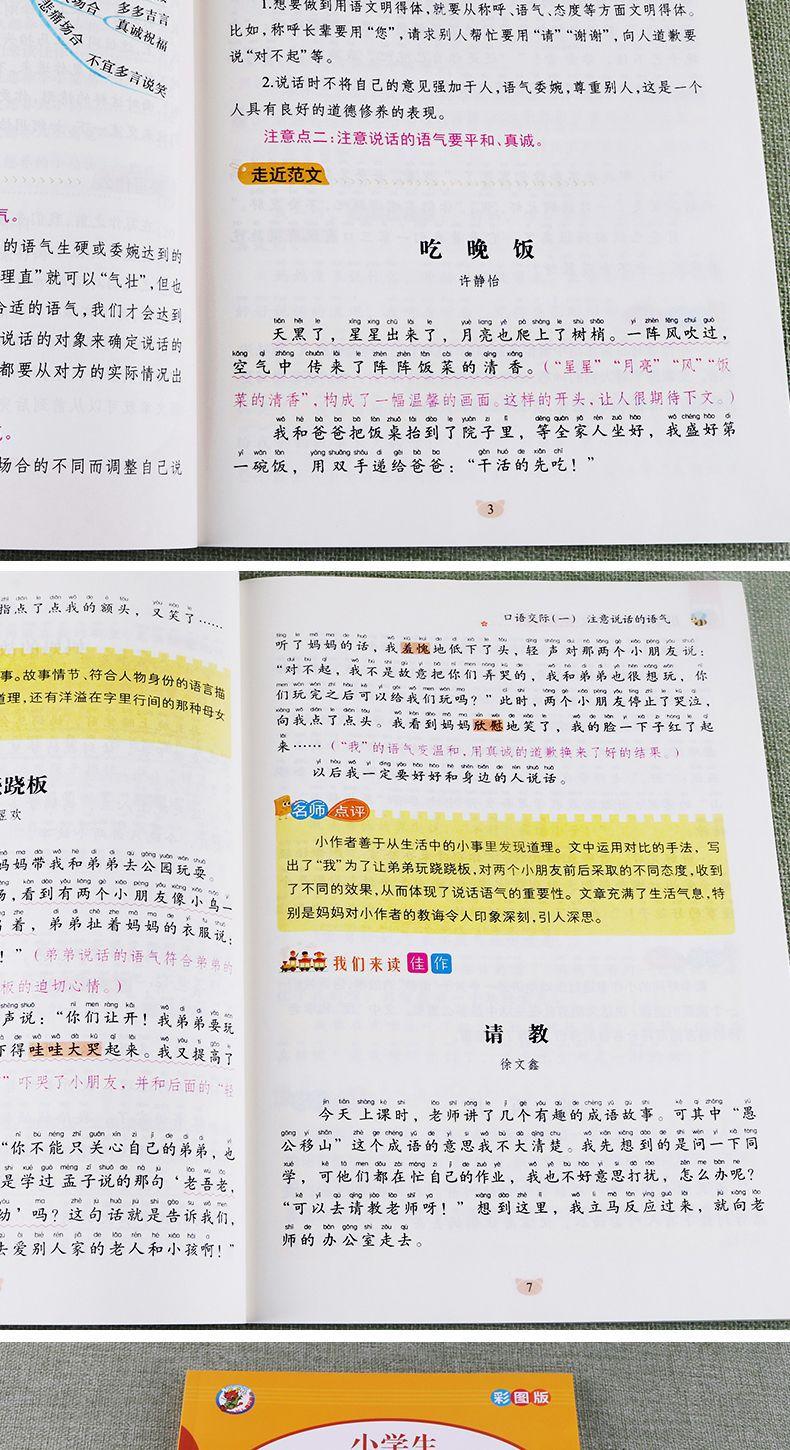 多多吉言
真诚祝福
悲痛场合
不宜多言说笑
气。
的语气生硬或委婉达到的
理直”就可以“气壮”,但也
合适的语气,我们才会达到
说话的对象来确定说话的
都要从对方的实际情况出
场合的不同而调整自己说
1.想要做到用语文明得体,就要从称呼、语气、态度等方面文明得体。
比如,称呼长辈要用“您”,请求别人帮忙要用“请”“谢谢”,向人道歉要
说“对不起”等。
2.说话时不将自己的意见强加于人,语气委婉,尊重别人,这是一个
人具有良好的道德修养的表现。
注意点二:注意说话的语气要平和、真诚。
走近范文
吃晚饭
许静怡
天黑了,星星出来了,月亮也爬上了树梢。一阵风吹过,
空气中传来了阵阵饭菜的清香。(“星星”“月亮”“风”“饭
菜的清香”,构成了一幅温馨的画面。这样的开头,让人很期待下文。)
我和爸爸把饭桌抬到了院子里,等全家人坐好,我盛好第
一碗饭,用双手递给爸爸:“干活的先吃!”
3
指点了点我的额头,又笑了……
事。故事情节、符合人物身份的语言描
道理,还有洋溢在字里行间的那种母女
跷板
欢
妈妈带我和弟弟去公园玩耍。
场,看到有两个小朋友像小鸟一
着,弟弟扯着妈妈的衣服说:
!”(弟弟说话的语气符合弟弟的
板的迫切心情。)
声说:“你们让开!我弟弟要玩
吓得哇哇大哭起来。我又提高了
”吓哭了小朋友,并和后面的“轻
“你不能只关心自己的弟弟,也
是学过孟子说的那句‘老吾老,
幼’吗?这句话就是告诉我们,
去爱别人家的老人和小孩啊!”
口语交际(一) 注意说话的语气
听了妈妈的话,我羞愧地低下了头,轻声对那两个小朋友说:
“对不起,我不是故意把你们弄哭的,我和弟弟也很想玩,你
们玩完之后可以给我们玩吗?”此时,两个小朋友停止了哭泣,
向我点了点头。我看到妈妈欣慰地笑了,我的脸一下子红了起
来……(“我”的语气变温和,用真诚的道歉换来了好的结果。)
以后我一定要好好和身边的人说话。
名师点评
小作者善于从生活中的小事里发现道理。文中运用对比的手法,写
出了“我”为了让弟弟玩跷跷板,对两个小朋友前后采取的不同态度,收到
了不同的效果,从而体现了说话语气的重要性。文章充满了生活气息,特
别是妈妈对小作者的教诲令人印象深刻,引人深思。
我们来读佳作
请教
徐文鑫
今天上课时,老师讲了几个有趣的成语故事。可其中“愚
公移山”这个成语的意思我不大清楚。我先想到的是问一下同
学,可他们都在忙自己的作业,我也不好意思打扰,怎么办呢?
“可以去请教老师呀!”想到这里,我立马反应过来,就向老
师的办公室走去。
7
彩图版
小学生